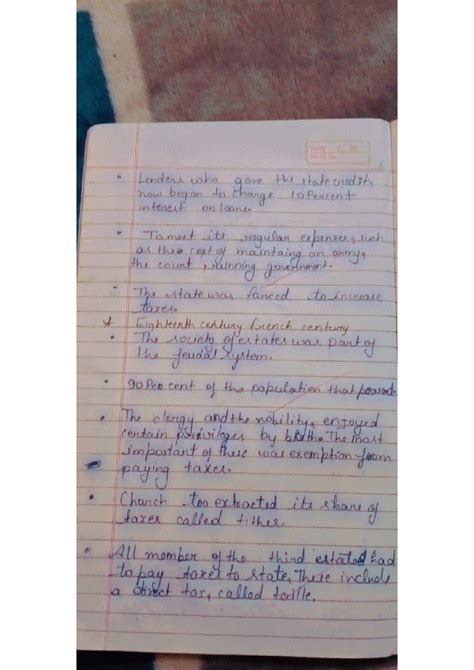 • Lenders who gave the state credit,
now began to charge 10 Percent
interest on loans.
• To meet its regular expenses, such
as the cost of maintaing an army,
the court, running government.
• The state was forced to increase
taxes.
* Eighteenth century french century
• The society of estates was part of
the feudal system.
• 90 Per cent of the population that peasant.
• The clergy and the nobility, enjoyed
certain privileges by birth. The most
important of these was exemption from
• paying taxes.
• Church too extracted its share of
taxes called tithes
• All member of the third estates had
to pay taxes to state, These include
a direct tax, called taille.